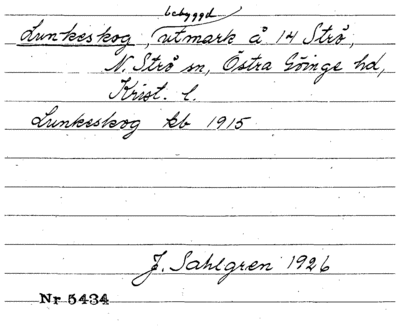 bebyggd
Lunkeskog, utmark å 14 Strö,
N. Strö sn, Östra Göinge hd,
Krist. l.
Lunkeskog kb 1915
J. Sahlgren 1926
Nr 5434